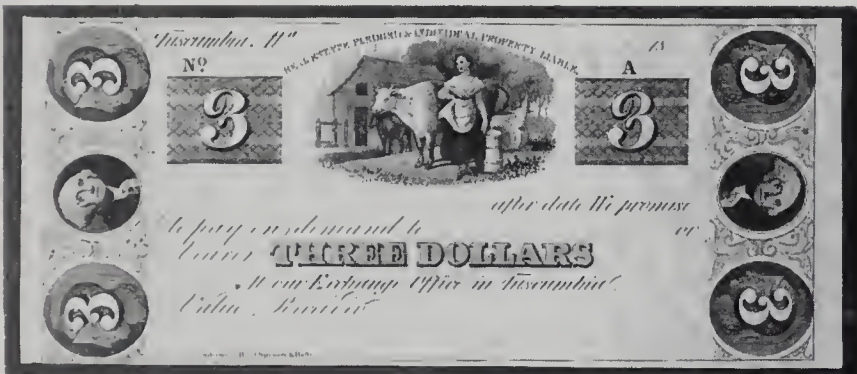 Tuscumbia, Al^a 18
REAL ESTATE PLEDGED & INDIVIDUAL PROPERTY LIABLE
Nº A
3 3 3 3
after date We promise
to pay on demand to or
bearer THREE DOLLARS
At our Exchange Office in Tuscumbia
Value Received
3 3